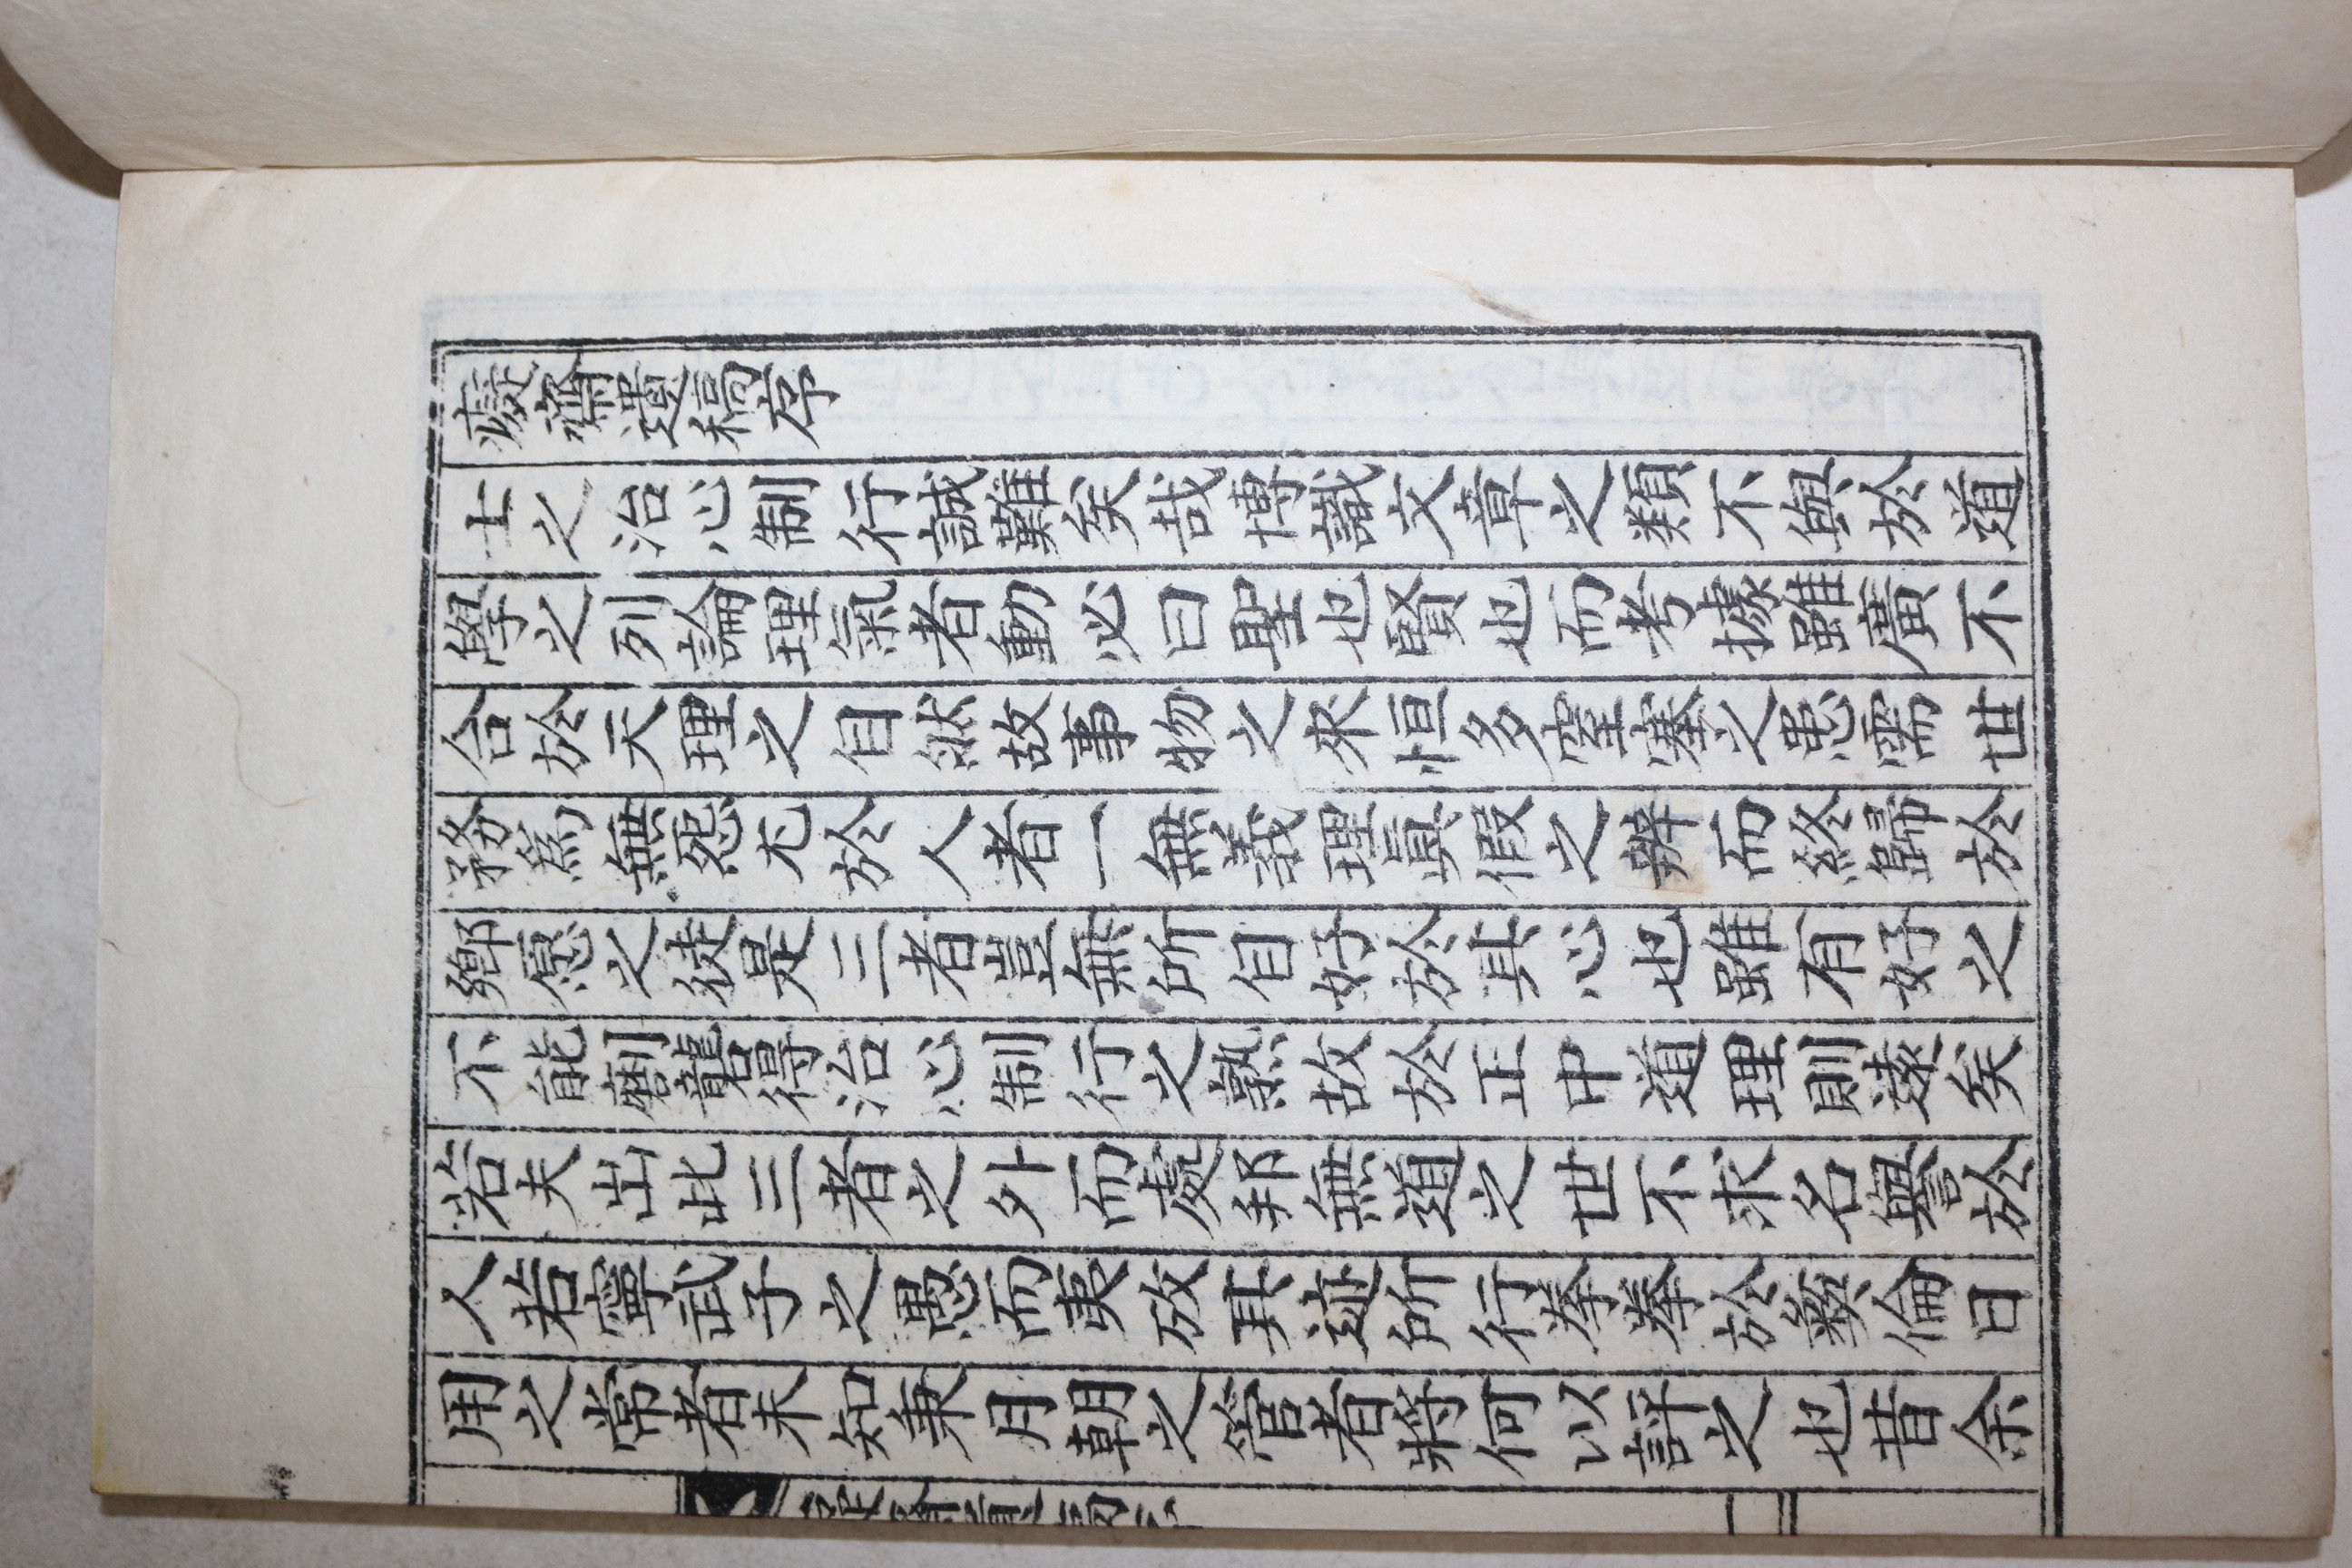 癡齋遺稿序
士之治心制行誠難矣哉博識文章之類不與於道
學之列論理氣者動必曰聖也賢也而考據雖廣不
合於天理之自然故事物之來恒多窒塞之患需世
務爲無怨尤於人者一無義理眞假之辨而終歸於
鄕愿之徒是三者豈無所自好於其心也雖有好之
不能劘礱得治心制行之熟故於正中道理則遠矣
若夫出此三者之外而處邦無道之世不求名譽於
人若寧武子之愚而夷攷其迹所行拳拳於彛倫日
用之常者未知兼月朝之管者將何以評之也昔余